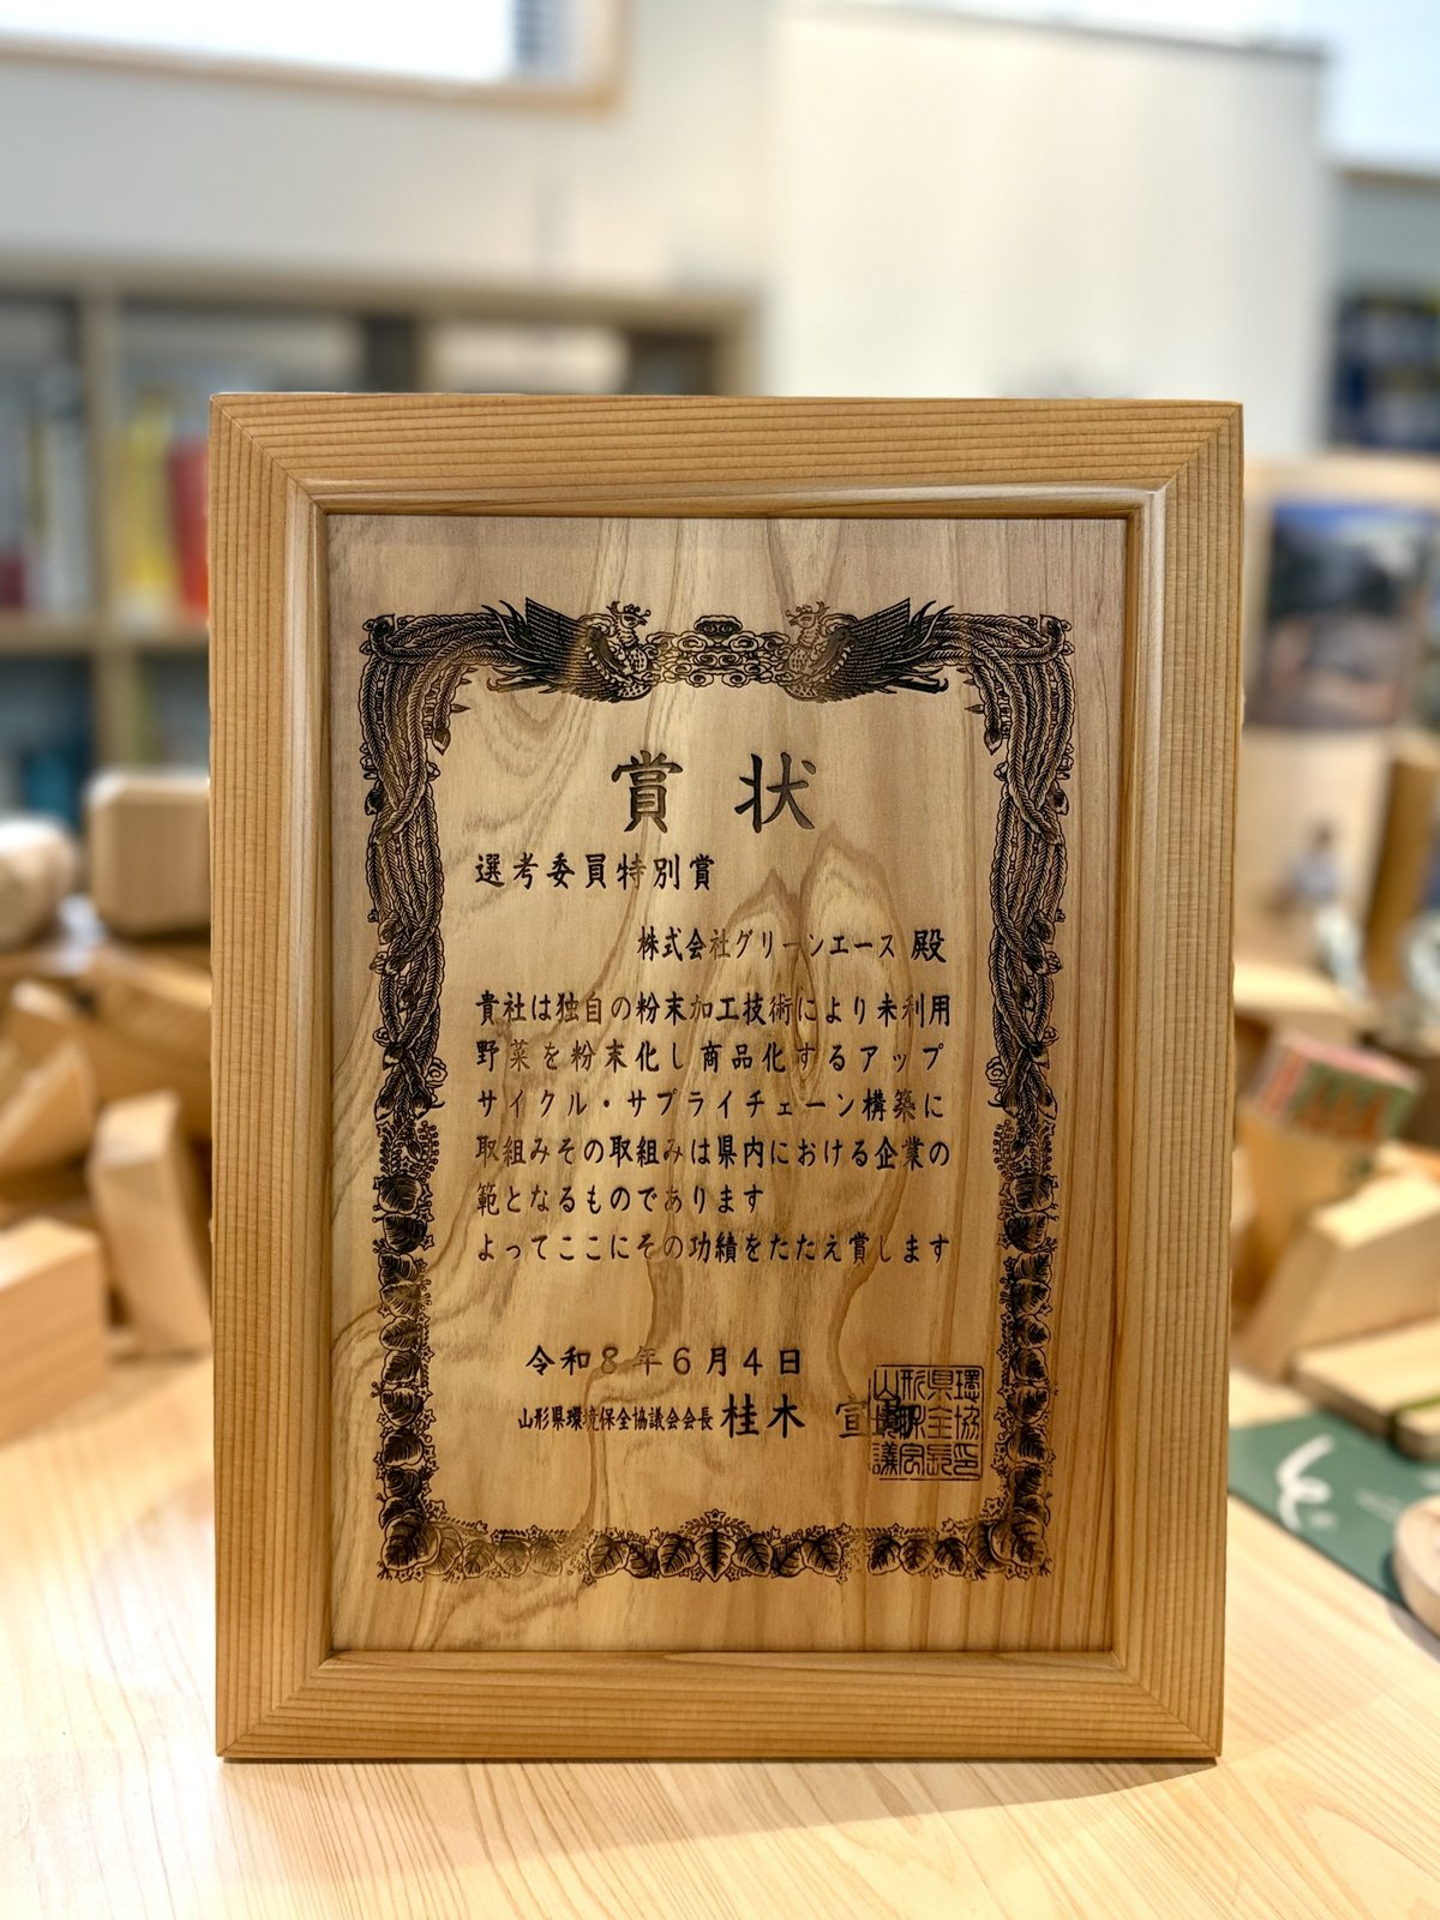 賞状
選考委員特別賞
株式会社グリーンエース 殿
貴社は独自の粉末加工技術により未利用
野菜を粉末化し商品化するアップ
サイクル・サプライチェーン構築に
取組みその取組みは県内における企業の
範となるものであります
よってここにその功績をたたえ賞します
令和8年6月4日
山形県環境保全協議会会長 桂木 宣